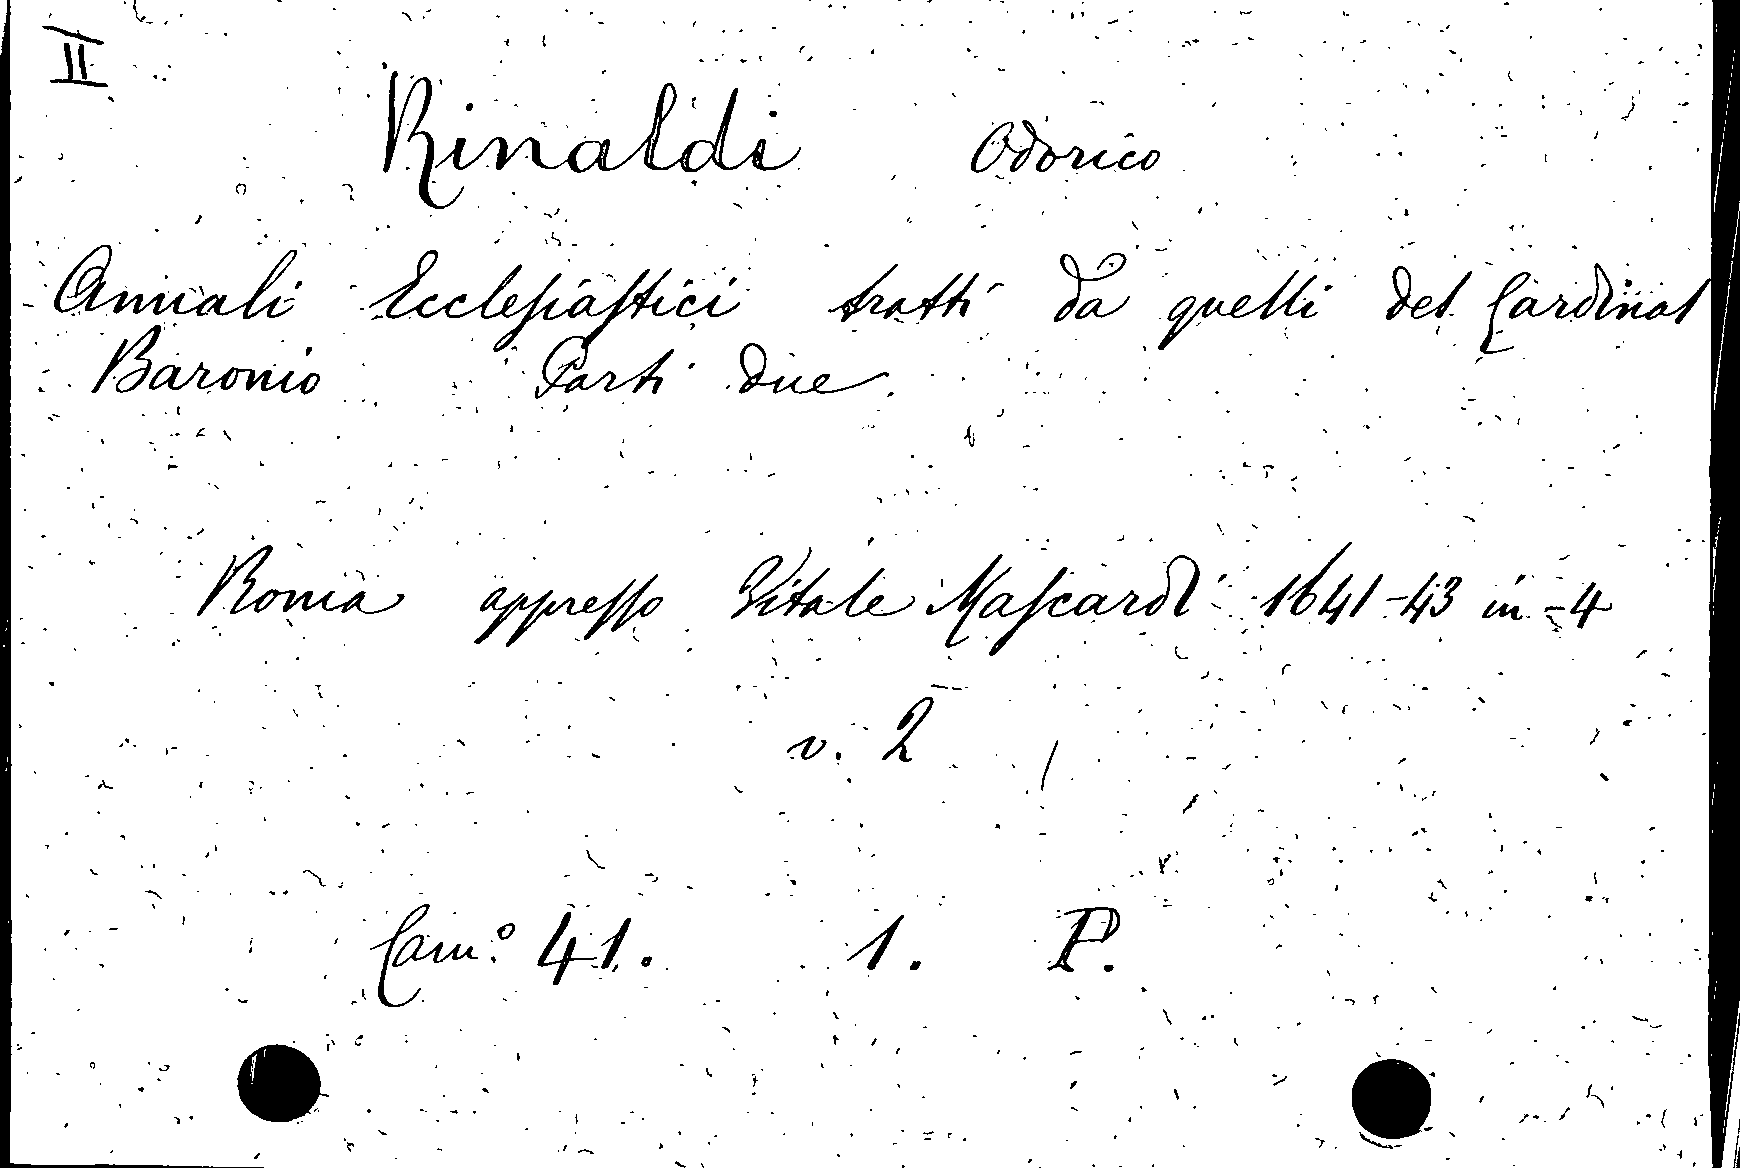 II
Rinaldi Odorico
Annali Ecclesiastici tratti da quelli del Cardinal
Baronio Parti due.
Roma appresso Vitale Mascardi 1641-43 in-4
v. 2
Cam.° 41. 1. P.